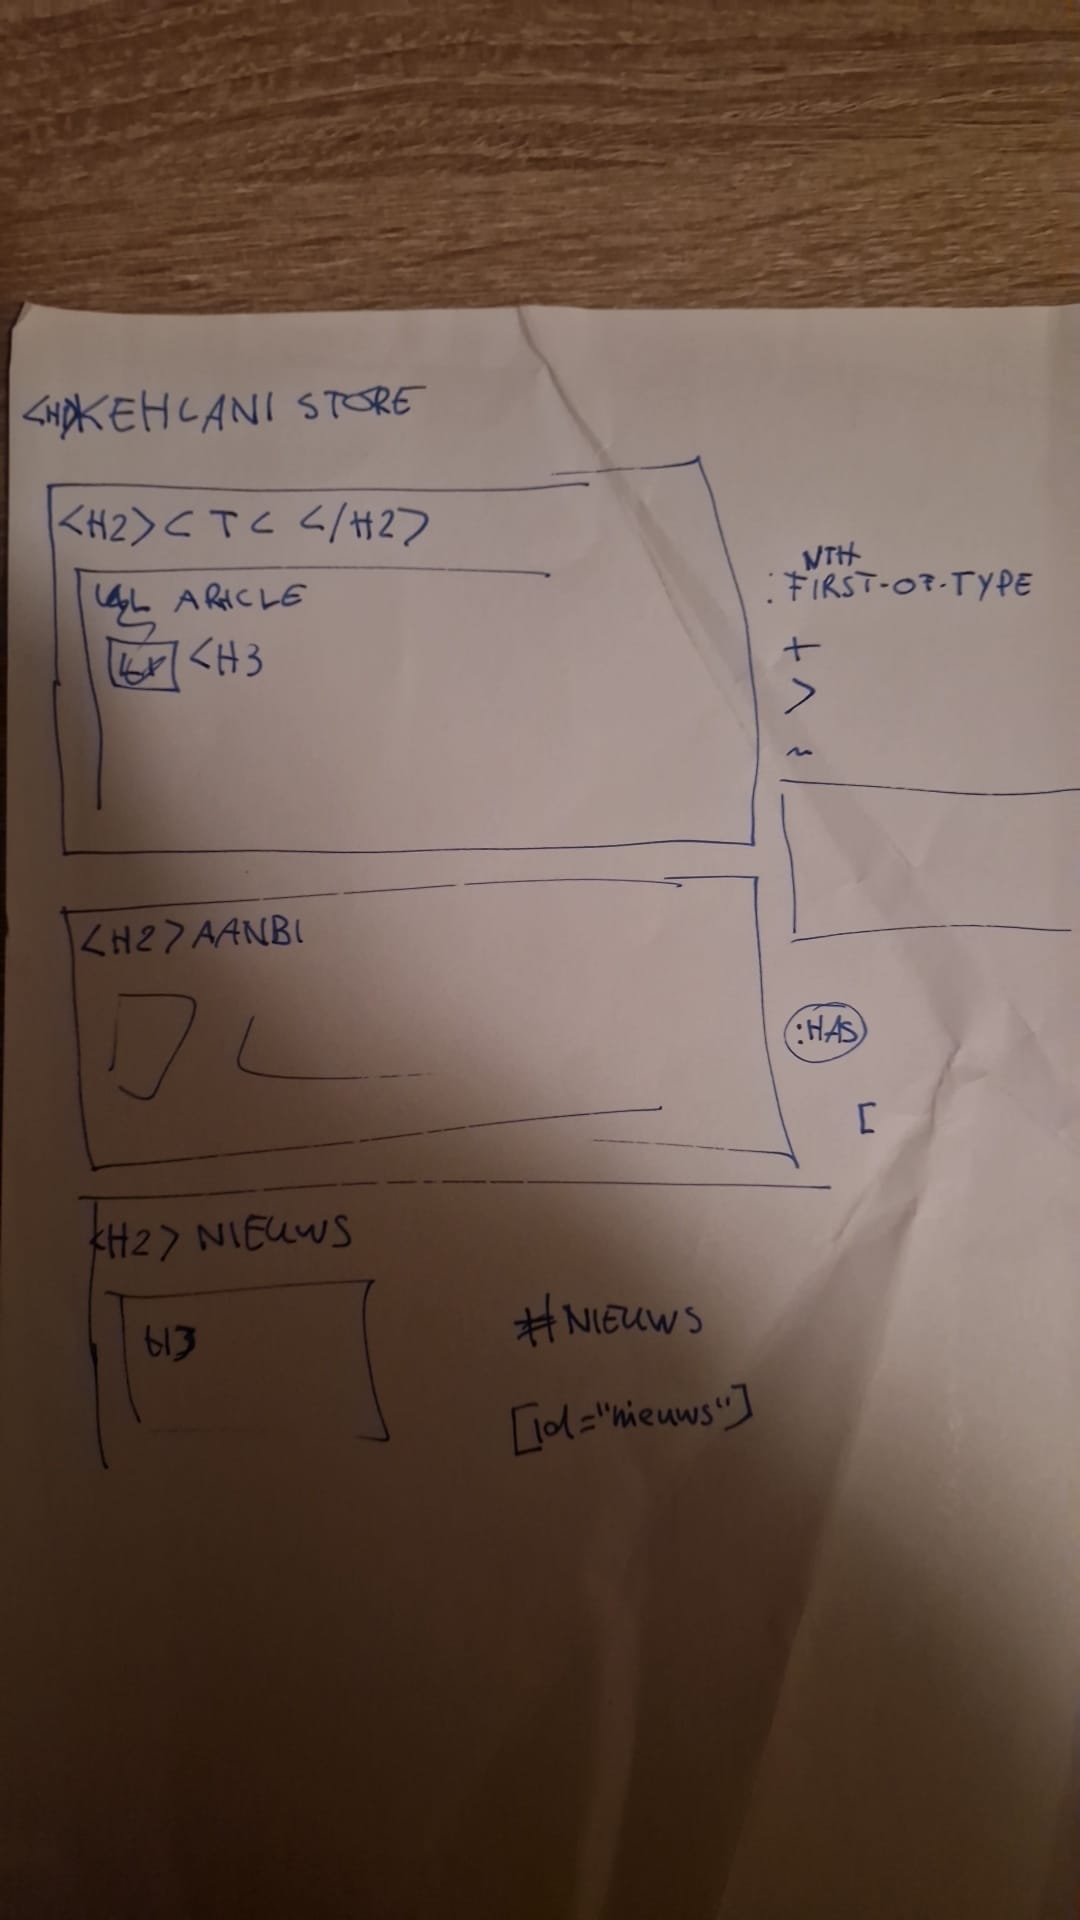 <H1>KEHLANI STORE
<H2>CTC </H2>
ARICLE
<H3
NTH
:FIRST-OF-TYPE
+
>
~
<H2>AANBI
:HAS
[
<H2> NIEUWS
#NIEUWS
[id="nieuws"]